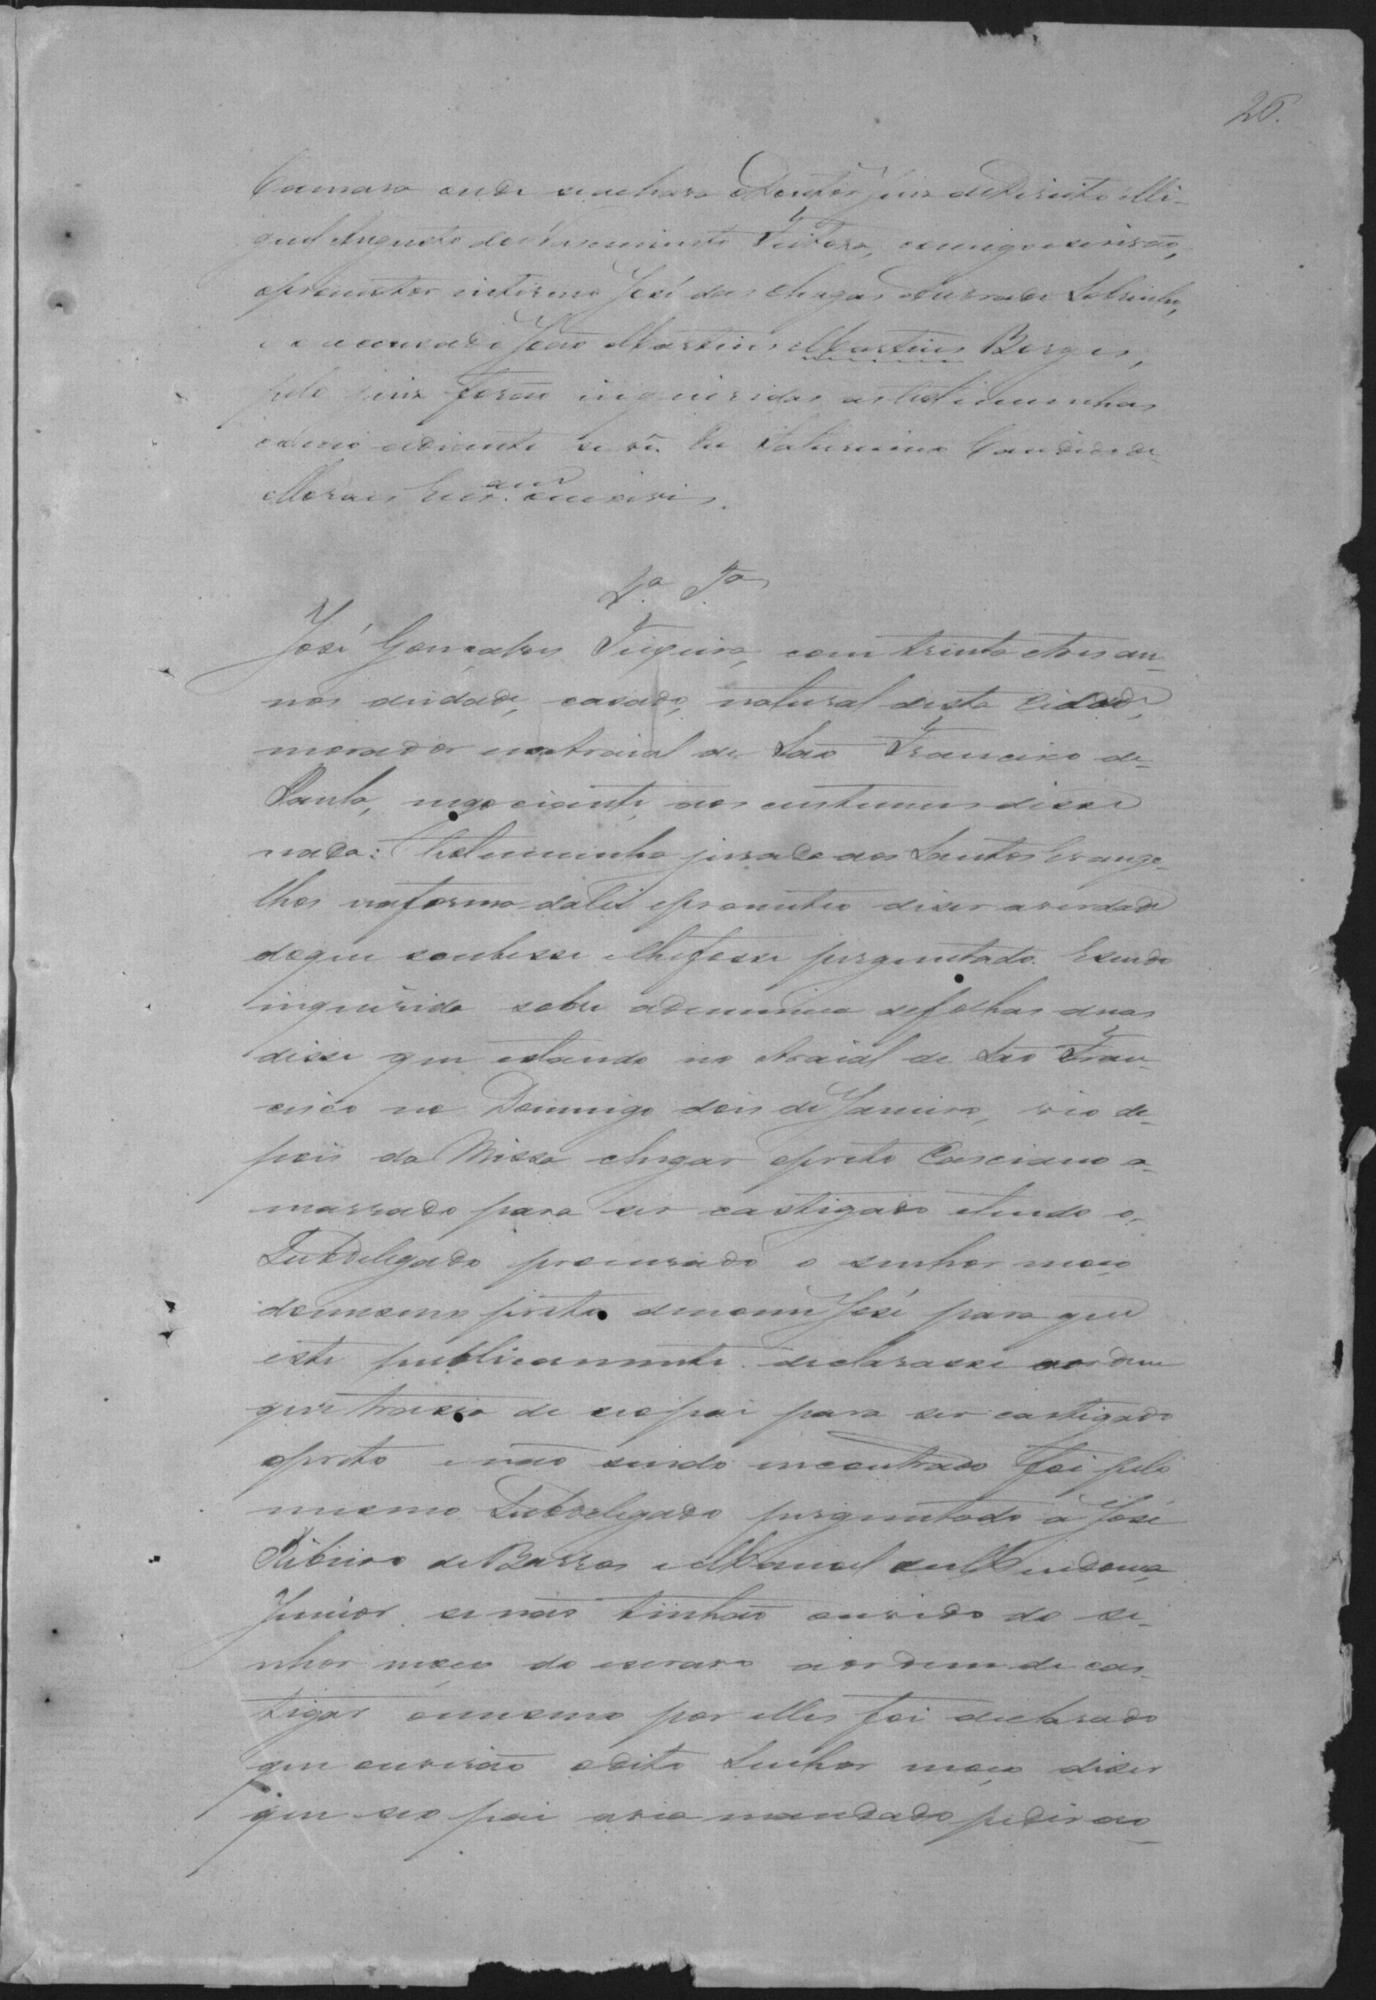 26.
Camara onde se achava o Doutor Juiz de Direito Mi-
guel Augusto do Nascimento Feitosa, comigo escrivão,
o promotor interino José das Chagas Andrade Sobrinho,
e o accusado João Martins Martins Borges,
pelo juiz forão inqueridas as testimunhas
como adiante se vê. Eu Saturnino Candido de
Moraes Escr.am que escrevi.
1.a T.a
José Gonçalves Teixeira, com trinta e tres an-
nos de idade, casado, natural desta Cidade,
morador no Arraial de São Francisco de
Paula, negociante, aos custumes disse
nada: testimunha jurada aos Santos Evange-
lhos na forma da lei e prometeo diser a verdade
do que soubesse e lhe fosse perguntado. E sendo
inquirida sobre a denuncia de folhas duas
disse que estando no Arraial de São Fran-
cisco no Domingo dois de Janeiro, vio de-
pois da Missa chegar o preto Casciano a-
marrado para ser castigado e tendo o
Subdelegado procurado o senhor moço
do mesmo preto de nome José para que
este publicamente declarasse a ordem
que trazia de seo pai para ser castigado
o preto e não sendo encontrado foi pelo
mesmo Subdelegado perguntado a José
Ribeiro de Barros e Manoel de Mendonça
Junior se não tinhão ouvido do se-
nhor moço do escravo a ordem de cas-
tigar o mesmo por elles foi declarado
que ouvirão o dito Senhor moço diser
que seo pai avia mandado pedir ao